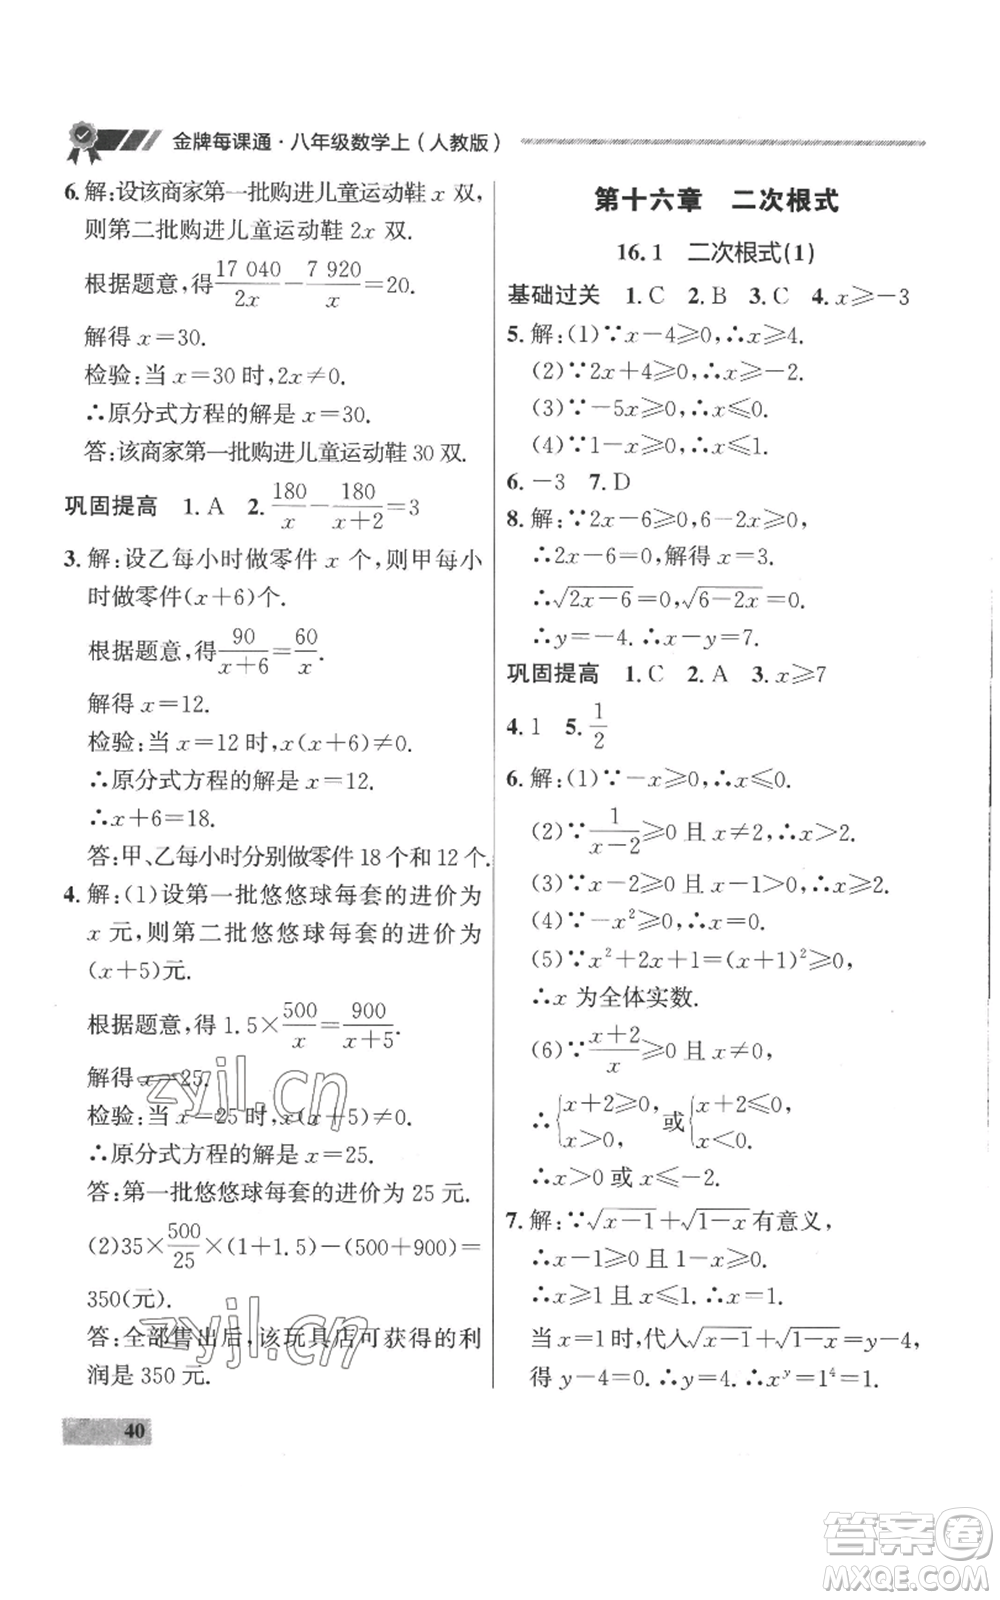 金牌每课通·八年级数学上(人教版)
6. 解:设该商家第一批购进儿童运动鞋 x 双,
则第二批购进儿童运动鞋 2x 双.
根据题意,得 17 040/2x − 7 920/x = 20.
解得 x=30.
检验:当 x=30 时,2x≠0.
∴原分式方程的解是 x=30.
答:该商家第一批购进儿童运动鞋 30 双.
巩固提高 1. A 2. 180/x − 180/(x+2) = 3
3. 解:设乙每小时做零件 x 个,则甲每小
时做零件(x+6)个.
根据题意,得 90/(x+6) = 60/x.
解得 x=12.
检验:当 x=12 时,x(x+6)≠0.
∴原分式方程的解是 x=12.
∴x+6=18.
答:甲、乙每小时分别做零件 18 个和 12 个.
4. 解:(1)设第一批悠悠球每套的进价为
x 元,则第二批悠悠球每套的进价为
(x+5)元.
根据题意,得 1.5×500/x = 900/(x+5).
解得 x=25.
检验:当 x=25 时,x(x+5)≠0.
∴原分式方程的解是 x=25.
答:第一批悠悠球每套的进价为 25 元.
(2)35×500/25×(1+1.5)−(500+900)=
350(元).
答:全部售出后,该玩具店可获得的利
润是 350 元.
第十六章 二次根式
16.1 二次根式(1)
基础过关 1. C 2. B 3. C 4. x≥−3
5. 解:(1)∵x−4≥0,∴x≥4.
(2)∵2x+4≥0,∴x≥−2.
(3)∵−5x≥0,∴x≤0.
(4)∵1−x≥0,∴x≤1.
6. −3 7. D
8. 解:∵2x−6≥0,6−2x≥0,
∴2x−6=0,解得 x=3.
∴√(2x−6)=0,√(6−2x)=0.
∴y=−4.∴x−y=7.
巩固提高 1. C 2. A 3. x≥7
4. 1 5. 1/2
6. 解:(1)∵−x≥0,∴x≤0.
(2)∵1/(x−2)≥0 且 x≠2,∴x>2.
(3)∵x−2≥0 且 x−1>0,∴x≥2.
(4)∵−x²≥0,∴x=0.
(5)∵x²+2x+1=(x+1)²≥0,
∴x 为全体实数.
(6)∵(x+2)/x≥0 且 x≠0,
∴{x+2≥0, x>0 或{x+2≤0, x<0.
∴x>0 或 x≤−2.
7. 解:∵√(x−1)+√(1−x)有意义,
∴x−1≥0 且 1−x≥0.
∴x≥1 且 x≤1.∴x=1.
当 x=1 时,代入√(x−1)+√(1−x)=y−4,
得 y−4=0.∴y=4.∴xʸ=1⁴=1.
zyjl.cn
zyjl.cn
40
答案卷
MXQE.COM